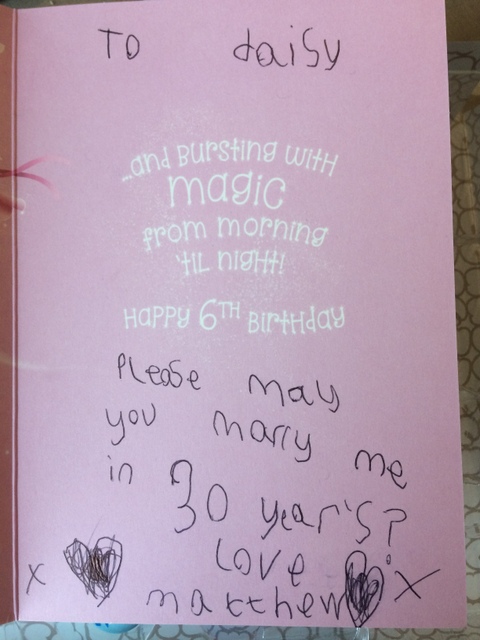 To daisy
...and Bursting with
magic
from morning
'til night!
Happy 6TH Birthday
Please may
you marry me
in 30 year's?
Love
x matthew x